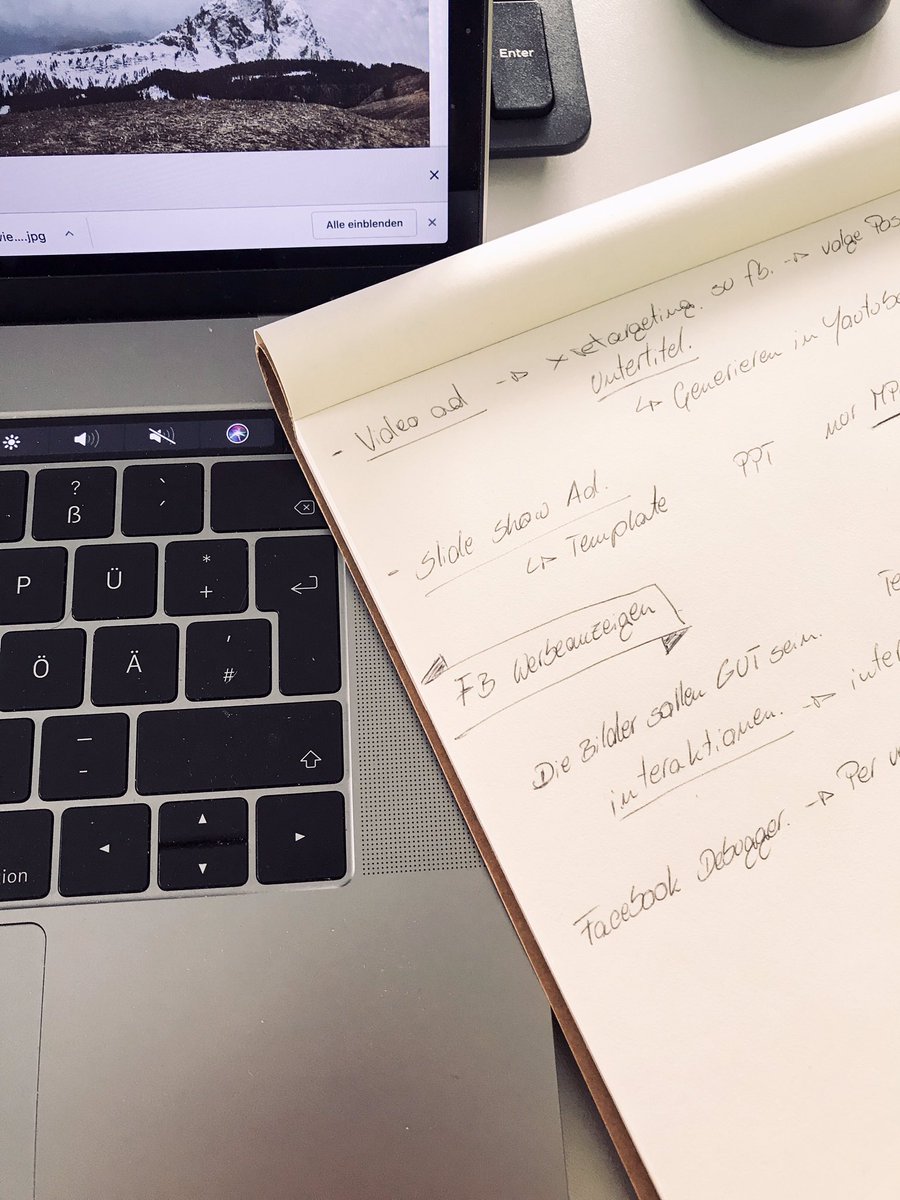 Enter
Alle einblenden
....jpg
- Video ad → x retargeting. → Pos
Untertitel.
↳ Generieren in Youtube
- Slide Show Ad. PPT MP
↳ Template
FB Werbeanzeigen
Te
Die Bilder sollen GUT sein.
interaktionen. → inter
Facebook Debugger. → Per
?
ß
P
Ü
*
+
Ö
Ä
'
#
ion